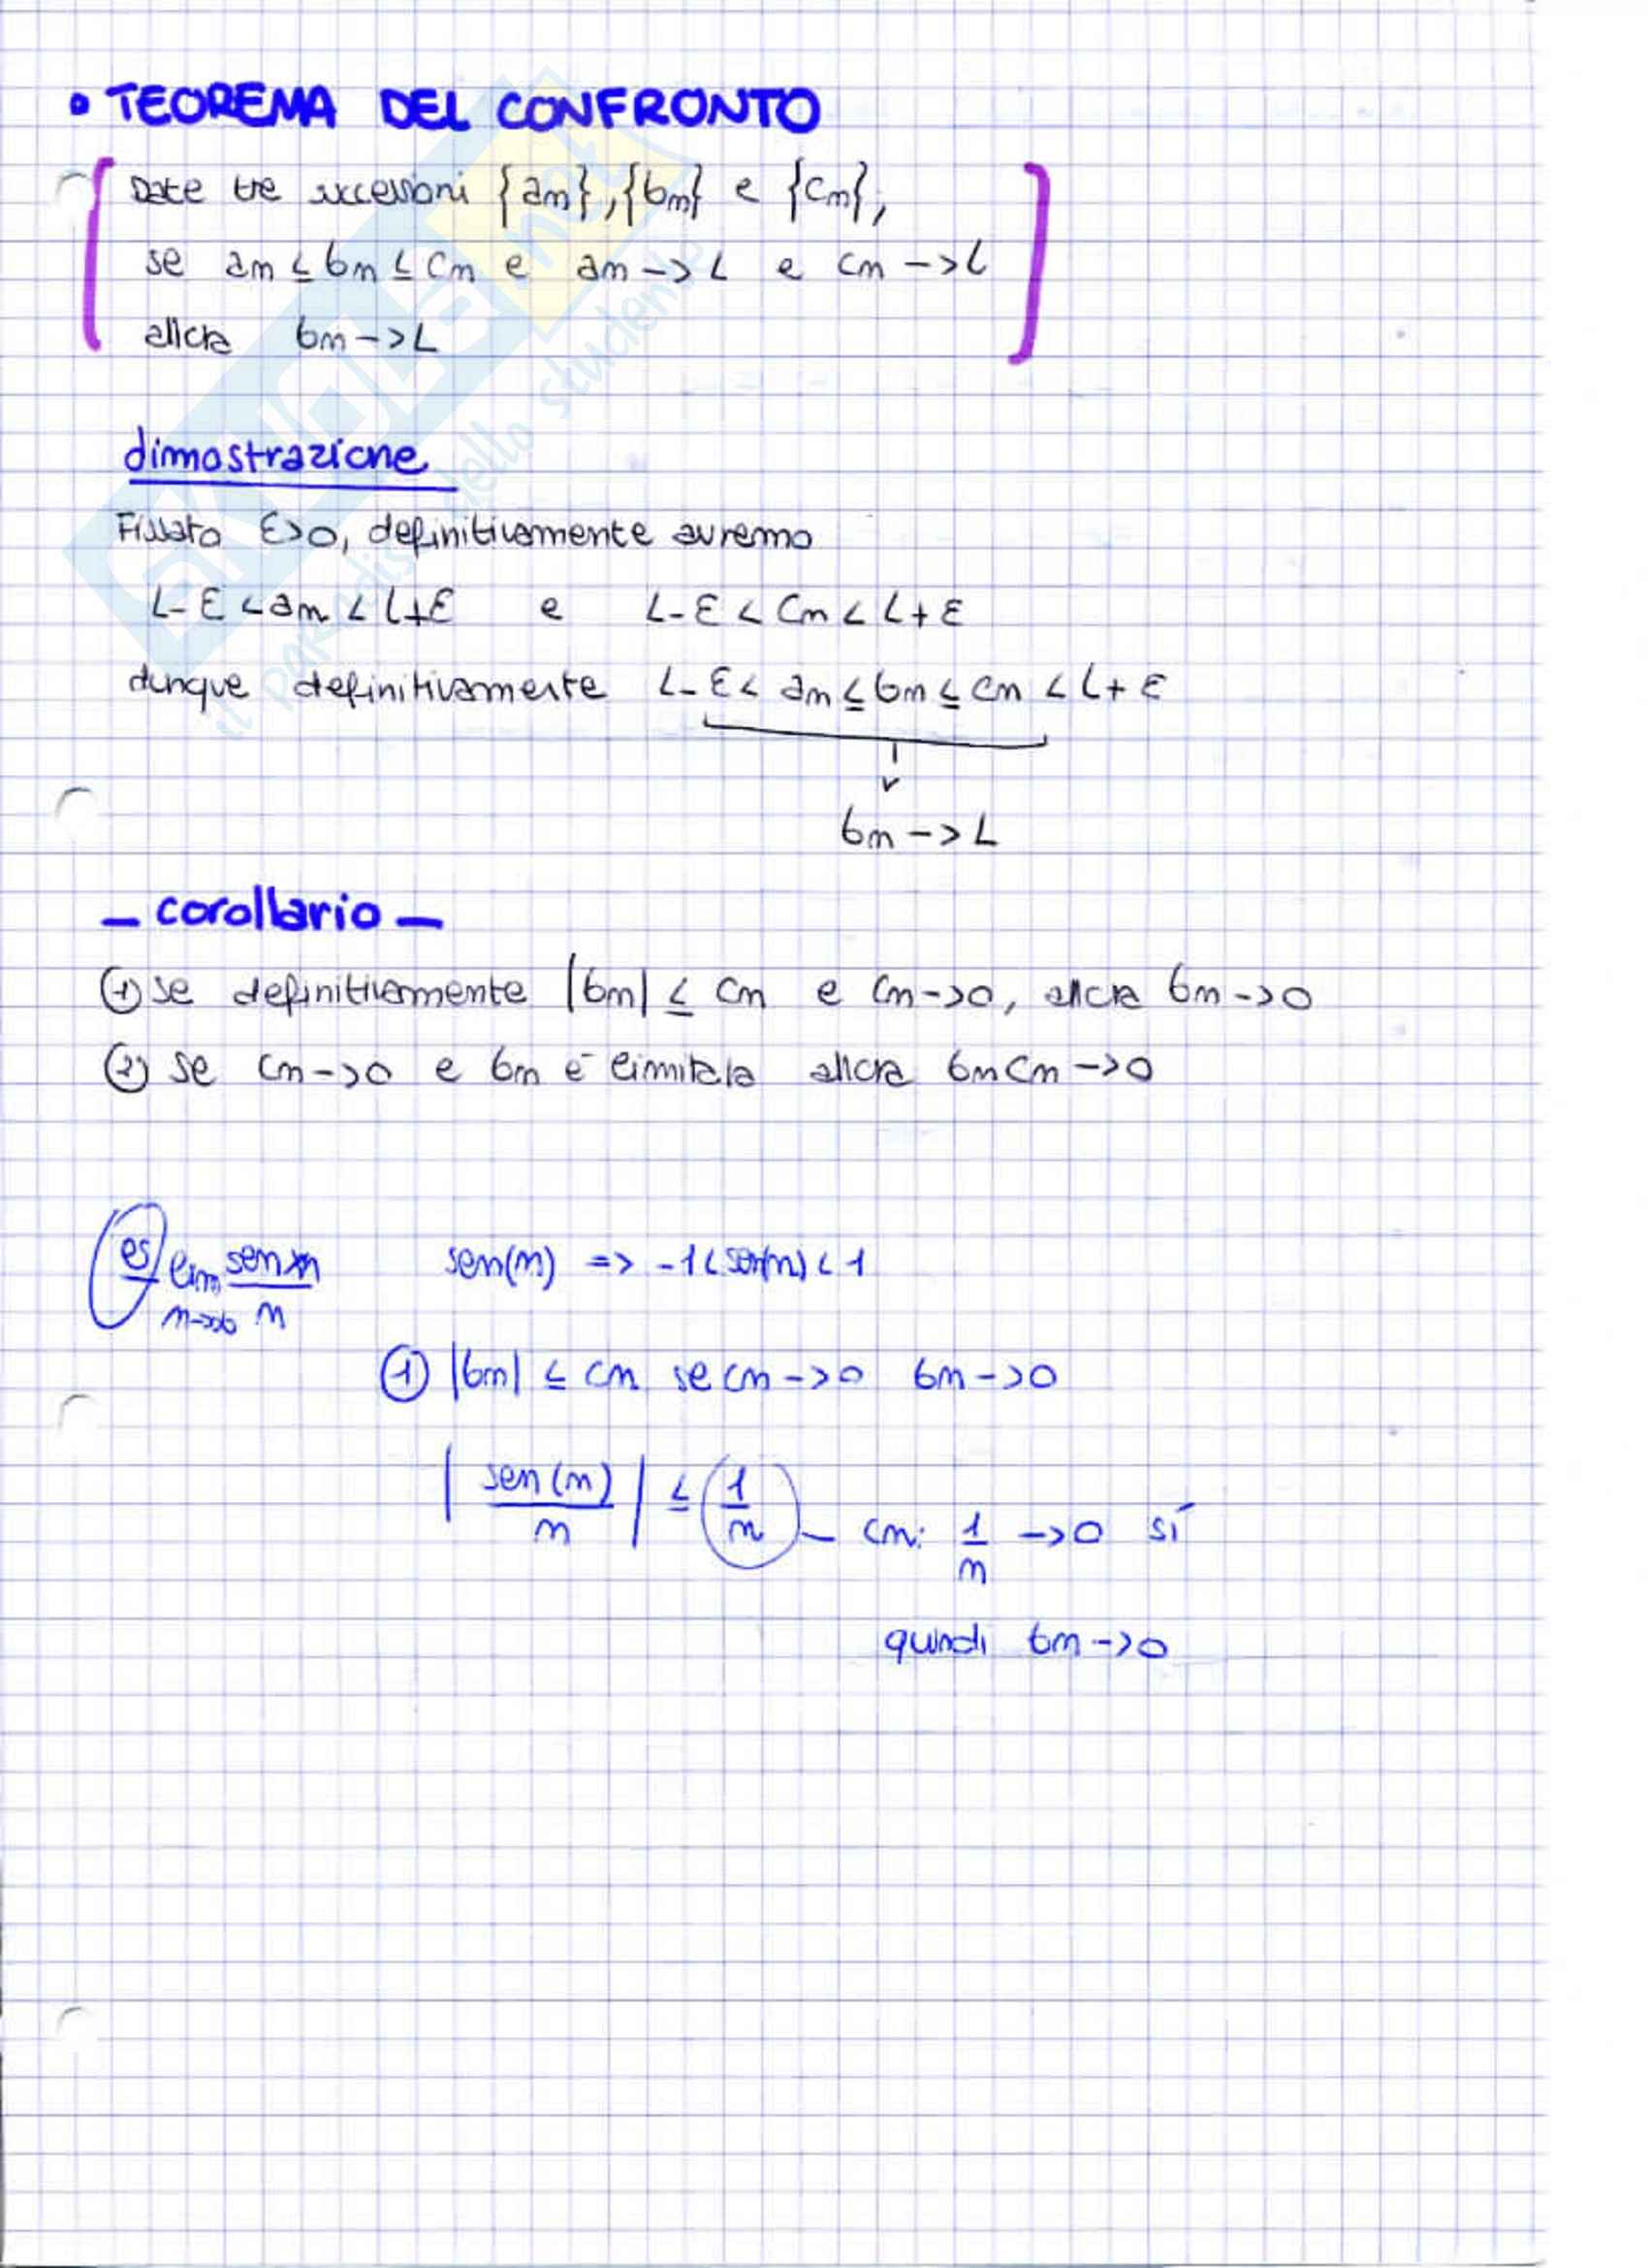 • TEOREMA DEL CONFRONTO
Date tre successioni {an}, {bn} e {cn},
se an ≤ bn ≤ cn e an -> L e cn -> L
allora bn -> L
dimostrazione
Fissato ε>0, definitivamente avremo
L-ε < an < L+ε e L-ε < cn < L+ε
dunque definitivamente L-ε < an ≤ bn ≤ cn < L+ε
bn -> L
- corollario -
① se definitivamente |bn| ≤ cn e cn->0, allora bn->0
② se cn->0 e bn è limitata allora bn cn ->0
es lim n->∞ sen n / n sen(n) => -1 < sen(n) < 1
① |bn| ≤ cn se cn ->0 bn->0
| sen(n) / n | ≤ 1/n - cn: 1/n ->0 sí
quindi bn->0
SKUOLA.net
il paradiso dello studente